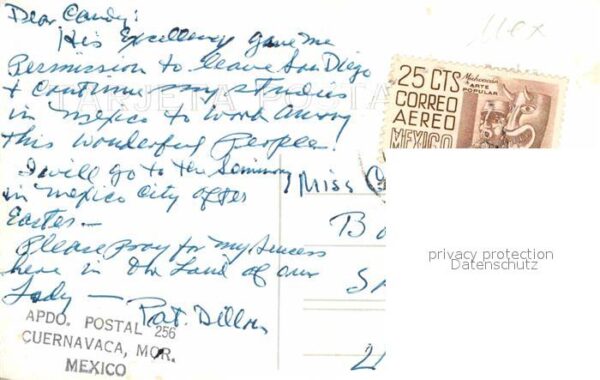 Dear Candy:
His Excellency gave me
Permission to leave San Diego
+ Continue my studies
in Mexico to work among
this Wonderful People.
I will go to the Seminary
in Mexico City after
Easter —
Please pray for my Success
here in the Land of our
Lady — Pat. Dillon
APDO. POSTAL 256
CUERNAVACA, MOR.
MEXICO
TARJETA POSTA
Mex
25 CTS
CORREO
AEREO
MEXICO
Michoacan
ARTE
POPULAR
Miss C
B
S
privacy protection
Datenschutz